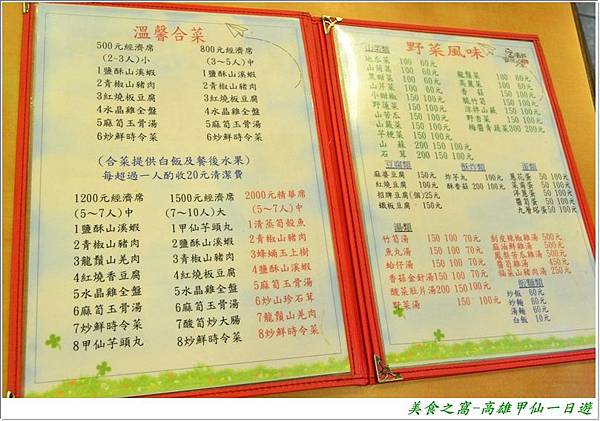 溫馨合菜
500元經濟席
(2-3人)小
1鹽酥山溪蝦
2青椒山豬肉
3紅燒板豆腐
4水晶雞全盤
5麻筍玉骨湯
6炒鮮時令菜
800元經濟席
(3~5人)中
1鹽酥山溪蝦
2青椒山豬肉
3紅燒板豆腐
4水晶雞全盤
5麻筍玉骨湯
6炒鮮時令菜
(合菜提供白飯及餐後水果)
每超過一人酌收20元清潔費
1200元經濟席
(5~7人)中
1鹽酥山溪蝦
2青椒山豬肉
3龍鬚山羌肉
4紅燒香豆腐
5水晶雞全盤
6麻筍玉骨湯
7炒鮮時令菜
8甲仙芋頭丸
1500元經濟席
(7~10人)大
1甲仙芋頭丸
2鹽酥山溪蝦
3青椒山豬肉
4紅燒板豆腐
5水晶雞全盤
6麻筍玉骨湯
7酸筍炒大腸
8炒鮮時令菜
2000元精華席
(5~7人)中
1清蒸筍殼魚
2青椒山豬肉
3蜂蛹玉上樹
4鹽酥山溪蝦
5麻筍玉骨湯
6炒山珍石茸
7龍鬚山羌肉
8炒鮮時令菜
野菜風味
山菜類
地瓜菜 100 60元
山蕨菜 100 60元
黑甜菜 100 60元
山芹菜 100 60元
小甜椒 150 100元
野蓮菜 150 100元
山苦瓜 150 100元
山蘇菜 150 100元
芋梗菜 150 100元
山蘇 200 150元
石茸 200 150元
龍鬚菜 100 60元
高麗菜 100 60元
香菇 100 60元
龍竹筍 150 100元
涼拌山蘇 150 100元
野香菜 150 100元
梅醬青蔬菜300 209元
豆腐類
麻婆豆腐 150元
紅燒豆腐 100元
招牌豆腐(個)25元
鐵板豆腐 150元
酥炸類
炸芋丸 100元
酥香菇 200 100元
蛋類
蔥花蛋 50 100元
菜脯蛋 50 100元
洋蔥蛋 50 100元
醬筍蛋 50 100元
九層塔蛋 50 100元
湯類
竹筍湯 150 100 70元
魚丸湯 150 100 70元
蛤仔湯 150 100 70元
香菇金針湯150 100 70元
酸菜肚片湯200 150 100元
野菜湯 150 100元
剝皮辣椒雞湯 500元
麻油鮮雞湯 500元
鳳梨苦瓜雞湯 500元
醬筍雞湯 450元
福菜山豬肉湯 250元
飯麵類
炒飯 60元
炒麵 60元
湯麵 60元
白飯 10元
美食之窩-高雄甲仙一日遊